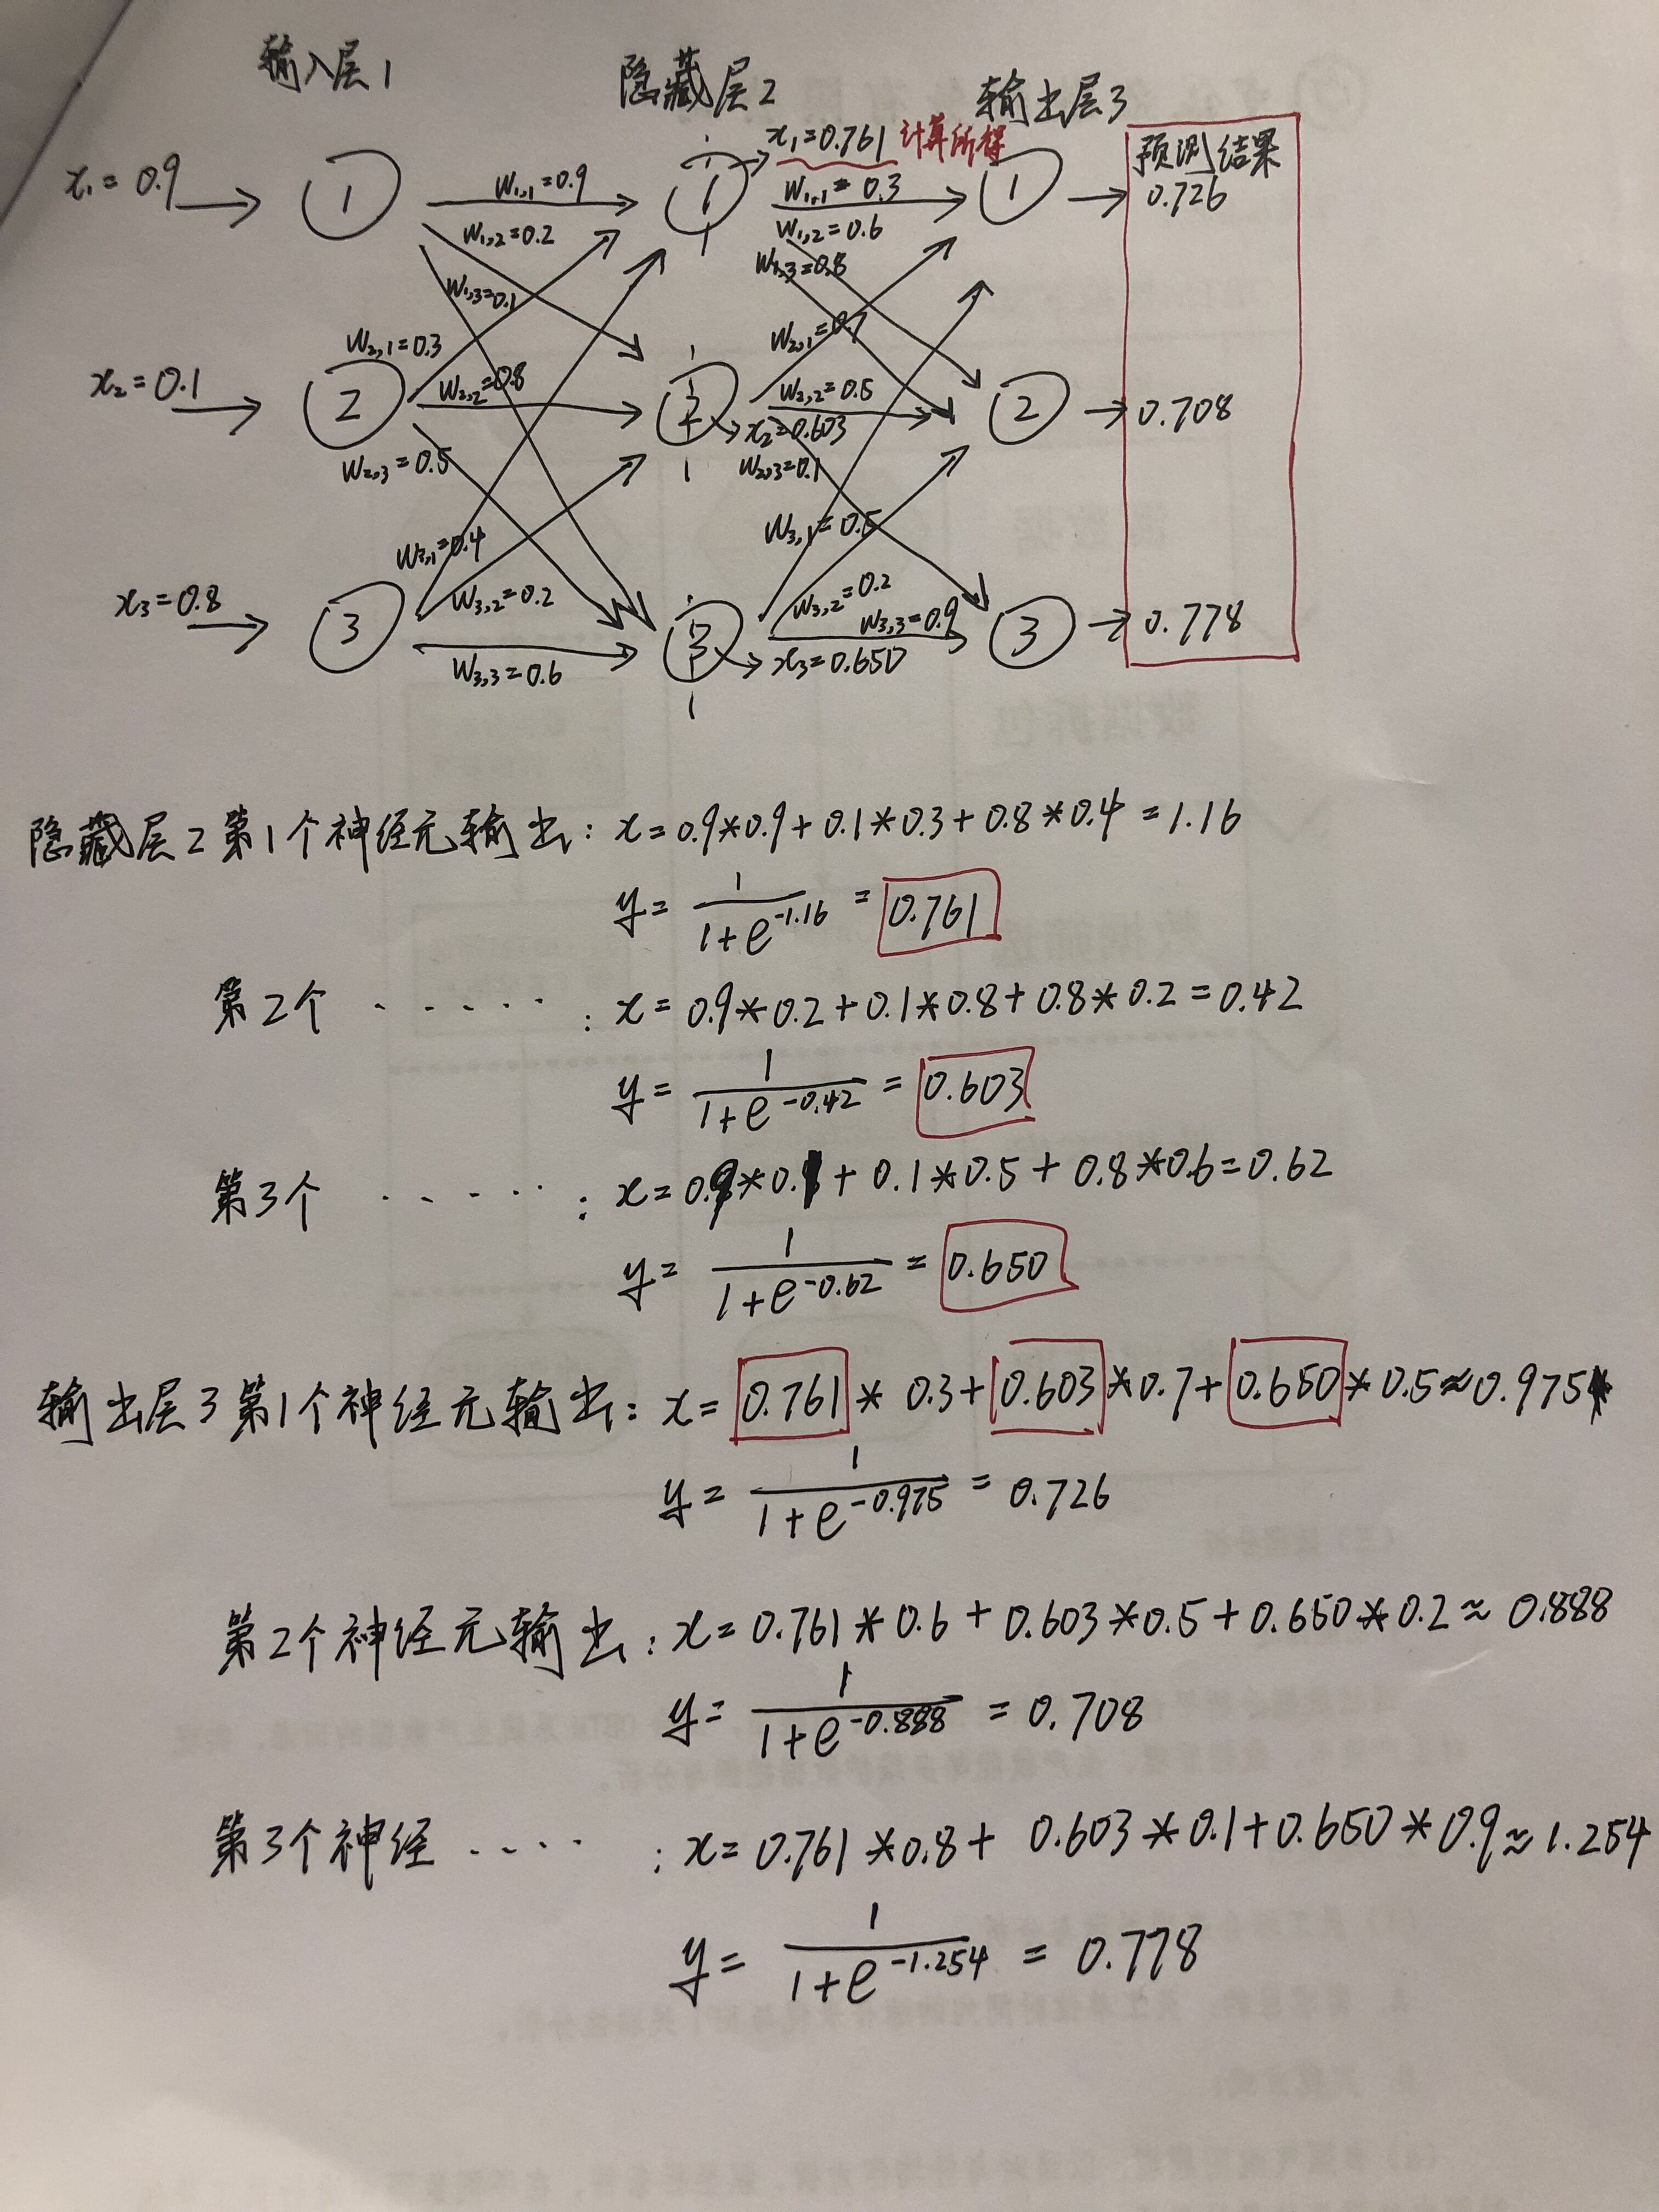 输入层1
隐藏层2
输出层3
x₁=0.761 计算所得
预测结果
x₁=0.9
1
w₁,₁=0.9
1
w₁,₁=0.3
1
0.726
w₁,₂=0.2
w₁,₂=0.6
w₁,₃=0.1
w₁,₃=0.8
w₂,₁=0.3
w₂,₁=0.7
x₂=0.1
2
w₂,₂=0.8
2
w₂,₂=0.5
2
0.708
x₂=0.603
w₂,₃=0.5
w₂,₃=0.1
w₃,₁=0.4
w₃,₁=0.5
x₃=0.8
3
w₃,₂=0.2
3
w₃,₂=0.2
w₃,₃=0.9
3
0.778
w₃,₃=0.6
x₃=0.650
隐藏层2第1个神经元输出: x=0.9*0.9+0.1*0.3+0.8*0.4=1.16
y=1/(1+e^-1.16)=0.761
第2个 ·····: x=0.9*0.2+0.1*0.8+0.8*0.2=0.42
y=1/(1+e^-0.42)=0.603
第3个 ·····: x=0.9*0.1+0.1*0.5+0.8*0.6=0.62
y=1/(1+e^-0.62)=0.650
输出层3第1个神经元输出: x=0.761*0.3+0.603*0.7+0.650*0.5≈0.975
y=1/(1+e^-0.975)=0.726
第2个神经元输出: x=0.761*0.6+0.603*0.5+0.650*0.2≈0.888
y=1/(1+e^-0.888)=0.708
第3个神经 ····: x=0.761*0.8+0.603*0.1+0.650*0.9≈1.254
y=1/(1+e^-1.254)=0.778